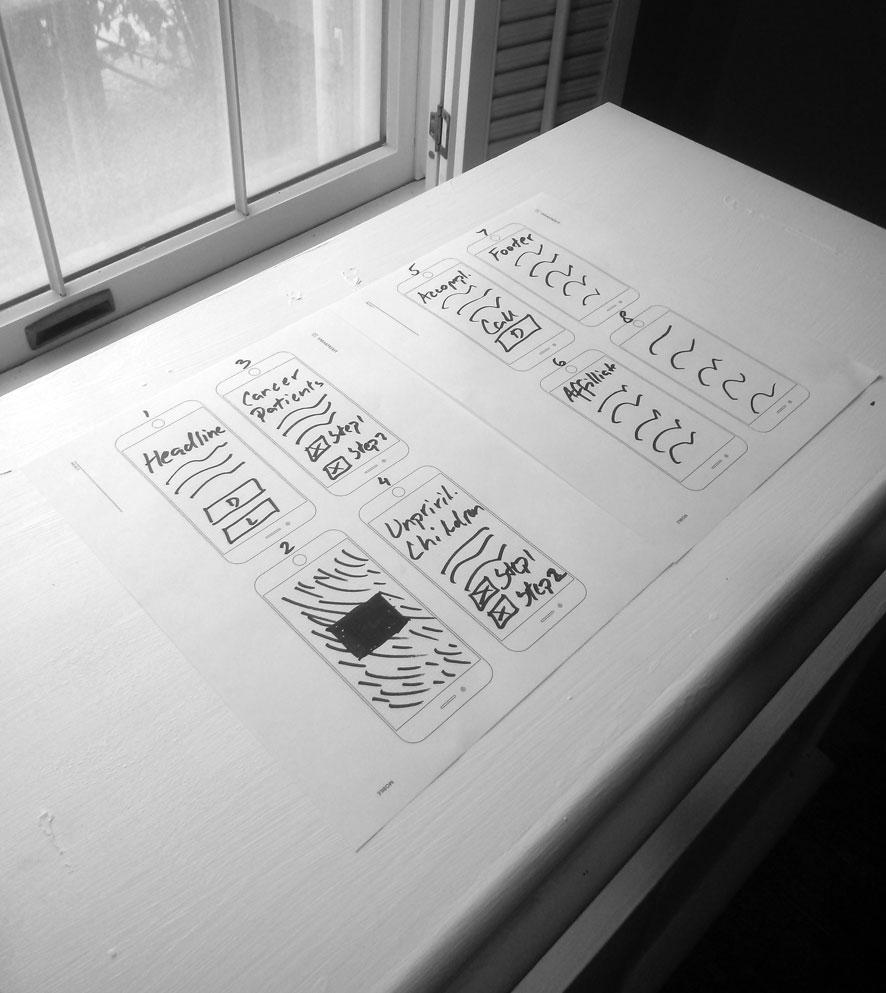 1
Headline
D
L
2
3
Cancer
Patients
Step1
Step2
4
Unprivil.
Children
Step1
Step2
MOBILE
5
Accompl.
Call
D
6
Affilliate
7
Footer
8